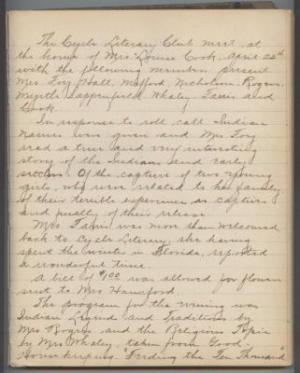 The Cycle Literary Club met at
the home of Mrs. Cook, April 22nd
with the following members present
Mrs. Foy, Hall, Nicholson, Rogers,
Whaley and
Cook.
In response to roll call Indian
names was given and Mrs Foy
read a true and very interesting
story of the Indians and early
settlers. Of the capture of two young
girls, who were related to her family,
of their terrible experience as captives
and finally of their release.
Mrs. was more than welcomed
back to Cycle Literary, she having
spent the winter in Florida, reported
a wonderful time.
A bill of $1.00 was allowed for flowers
sent to Mrs
The program for the evening was
Indian Legend and Traditions by
Mrs Rogers and the Religious Topic
by Mrs Whaley, taken from Good
Housekeeping. Feeding the Ten Thousand"